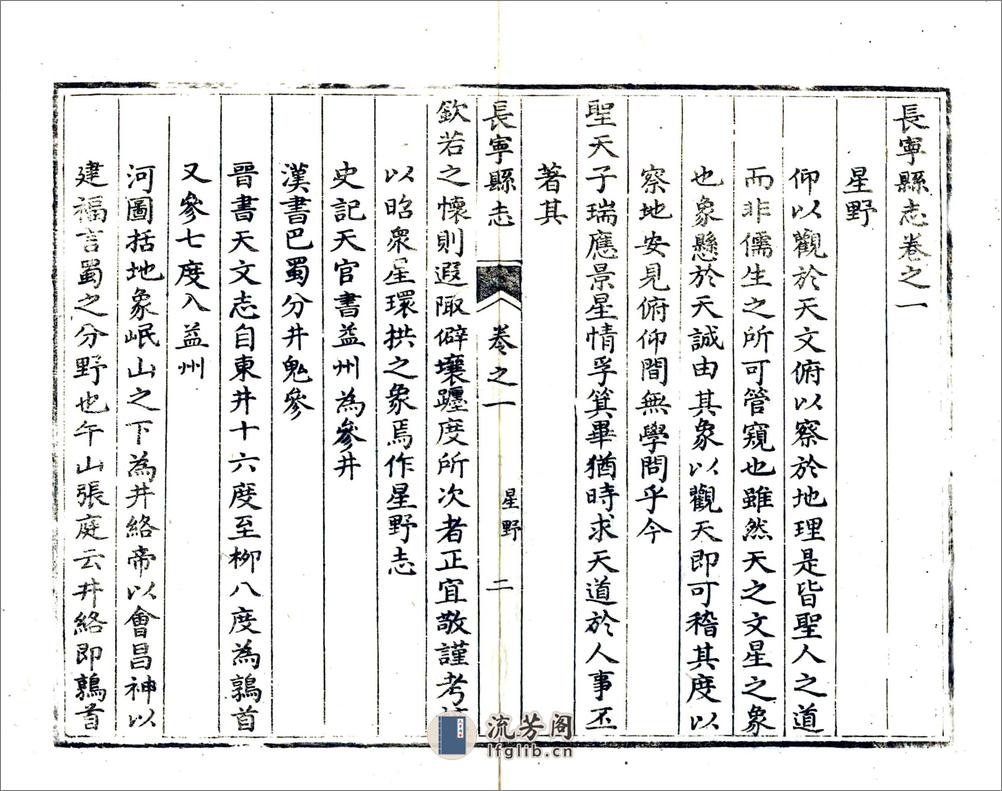 長寧縣志卷之一
星野
仰以觀於天文俯以察於地理是皆聖人之道
而非儒生之所可管窺也雖然天之文星之象
也象懸於天誠由其象以觀天即可稽其度以
察地安見俯仰間無學問乎今
聖天子瑞應景星情孚箕畢猶時求天道於人事丕
著其
長寧縣志 卷之一 星野 二
欽若之懷則遐陬僻壤躔度所次者正宜敬謹考
以昭衆星環拱之象焉作星野志
史記天官書益州為參井
漢書巴蜀分井鬼參
晉書天文志自東井十六度至柳八度為鶉首
又參七度入益州
河圖括地象岷山之下為井絡帝以會昌神以
建福言蜀之分野也午山張庭云井絡即鶉首
流芳阁
lfglib.cn